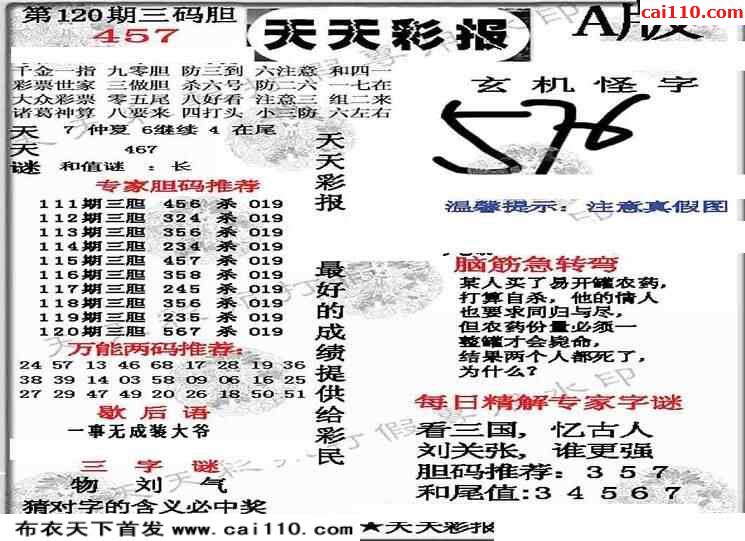 第120期三码胆
457
天天彩报
A版
cai110.com
千金一指 九零胆 防三到 六注意 和四一
彩票世家 三做胆 杀六号 防二六 一七在
大众彩票 零五尾 八好看 注意三 组二来
诸葛神算 八要来 四打头 小三防 六左右
天 7 仲夏 6继续 4 在尾
天 467
谜 和值谜：长
专家胆码推荐
111期三胆 456 杀 019
112期三胆 324 杀 019
113期三胆 356 杀 019
114期三胆 234 杀 019
115期三胆 457 杀 019
116期三胆 358 杀 019
117期三胆 245 杀 019
118期三胆 356 杀 019
119期三胆 235 杀 019
120期三胆 567 杀 019
万能两码推荐：
24 57 13 46 68 17 28 19 36
38 39 14 03 58 09 06 16 25
27 29 47 49 20 26 18 50 51
歇后语
一事无成装大爷
三字谜
物 刘 气
猜对字的含义必中奖
天天彩报
最好的成绩提供给彩民
玄机怪字
温馨提示：注意真假图
脑筋急转弯
某人买了易开罐农药，
打算自杀，他的情人
也要求同归与尽，
但农药份量必须一
整罐才会毙命，
结果两个人都死了，
为什么？
每日精解专家字谜
看三国，忆古人
刘关张，谁更强
胆码推荐：357
和尾值：34567
布衣天下首发 www.cai110.com ★天天彩报